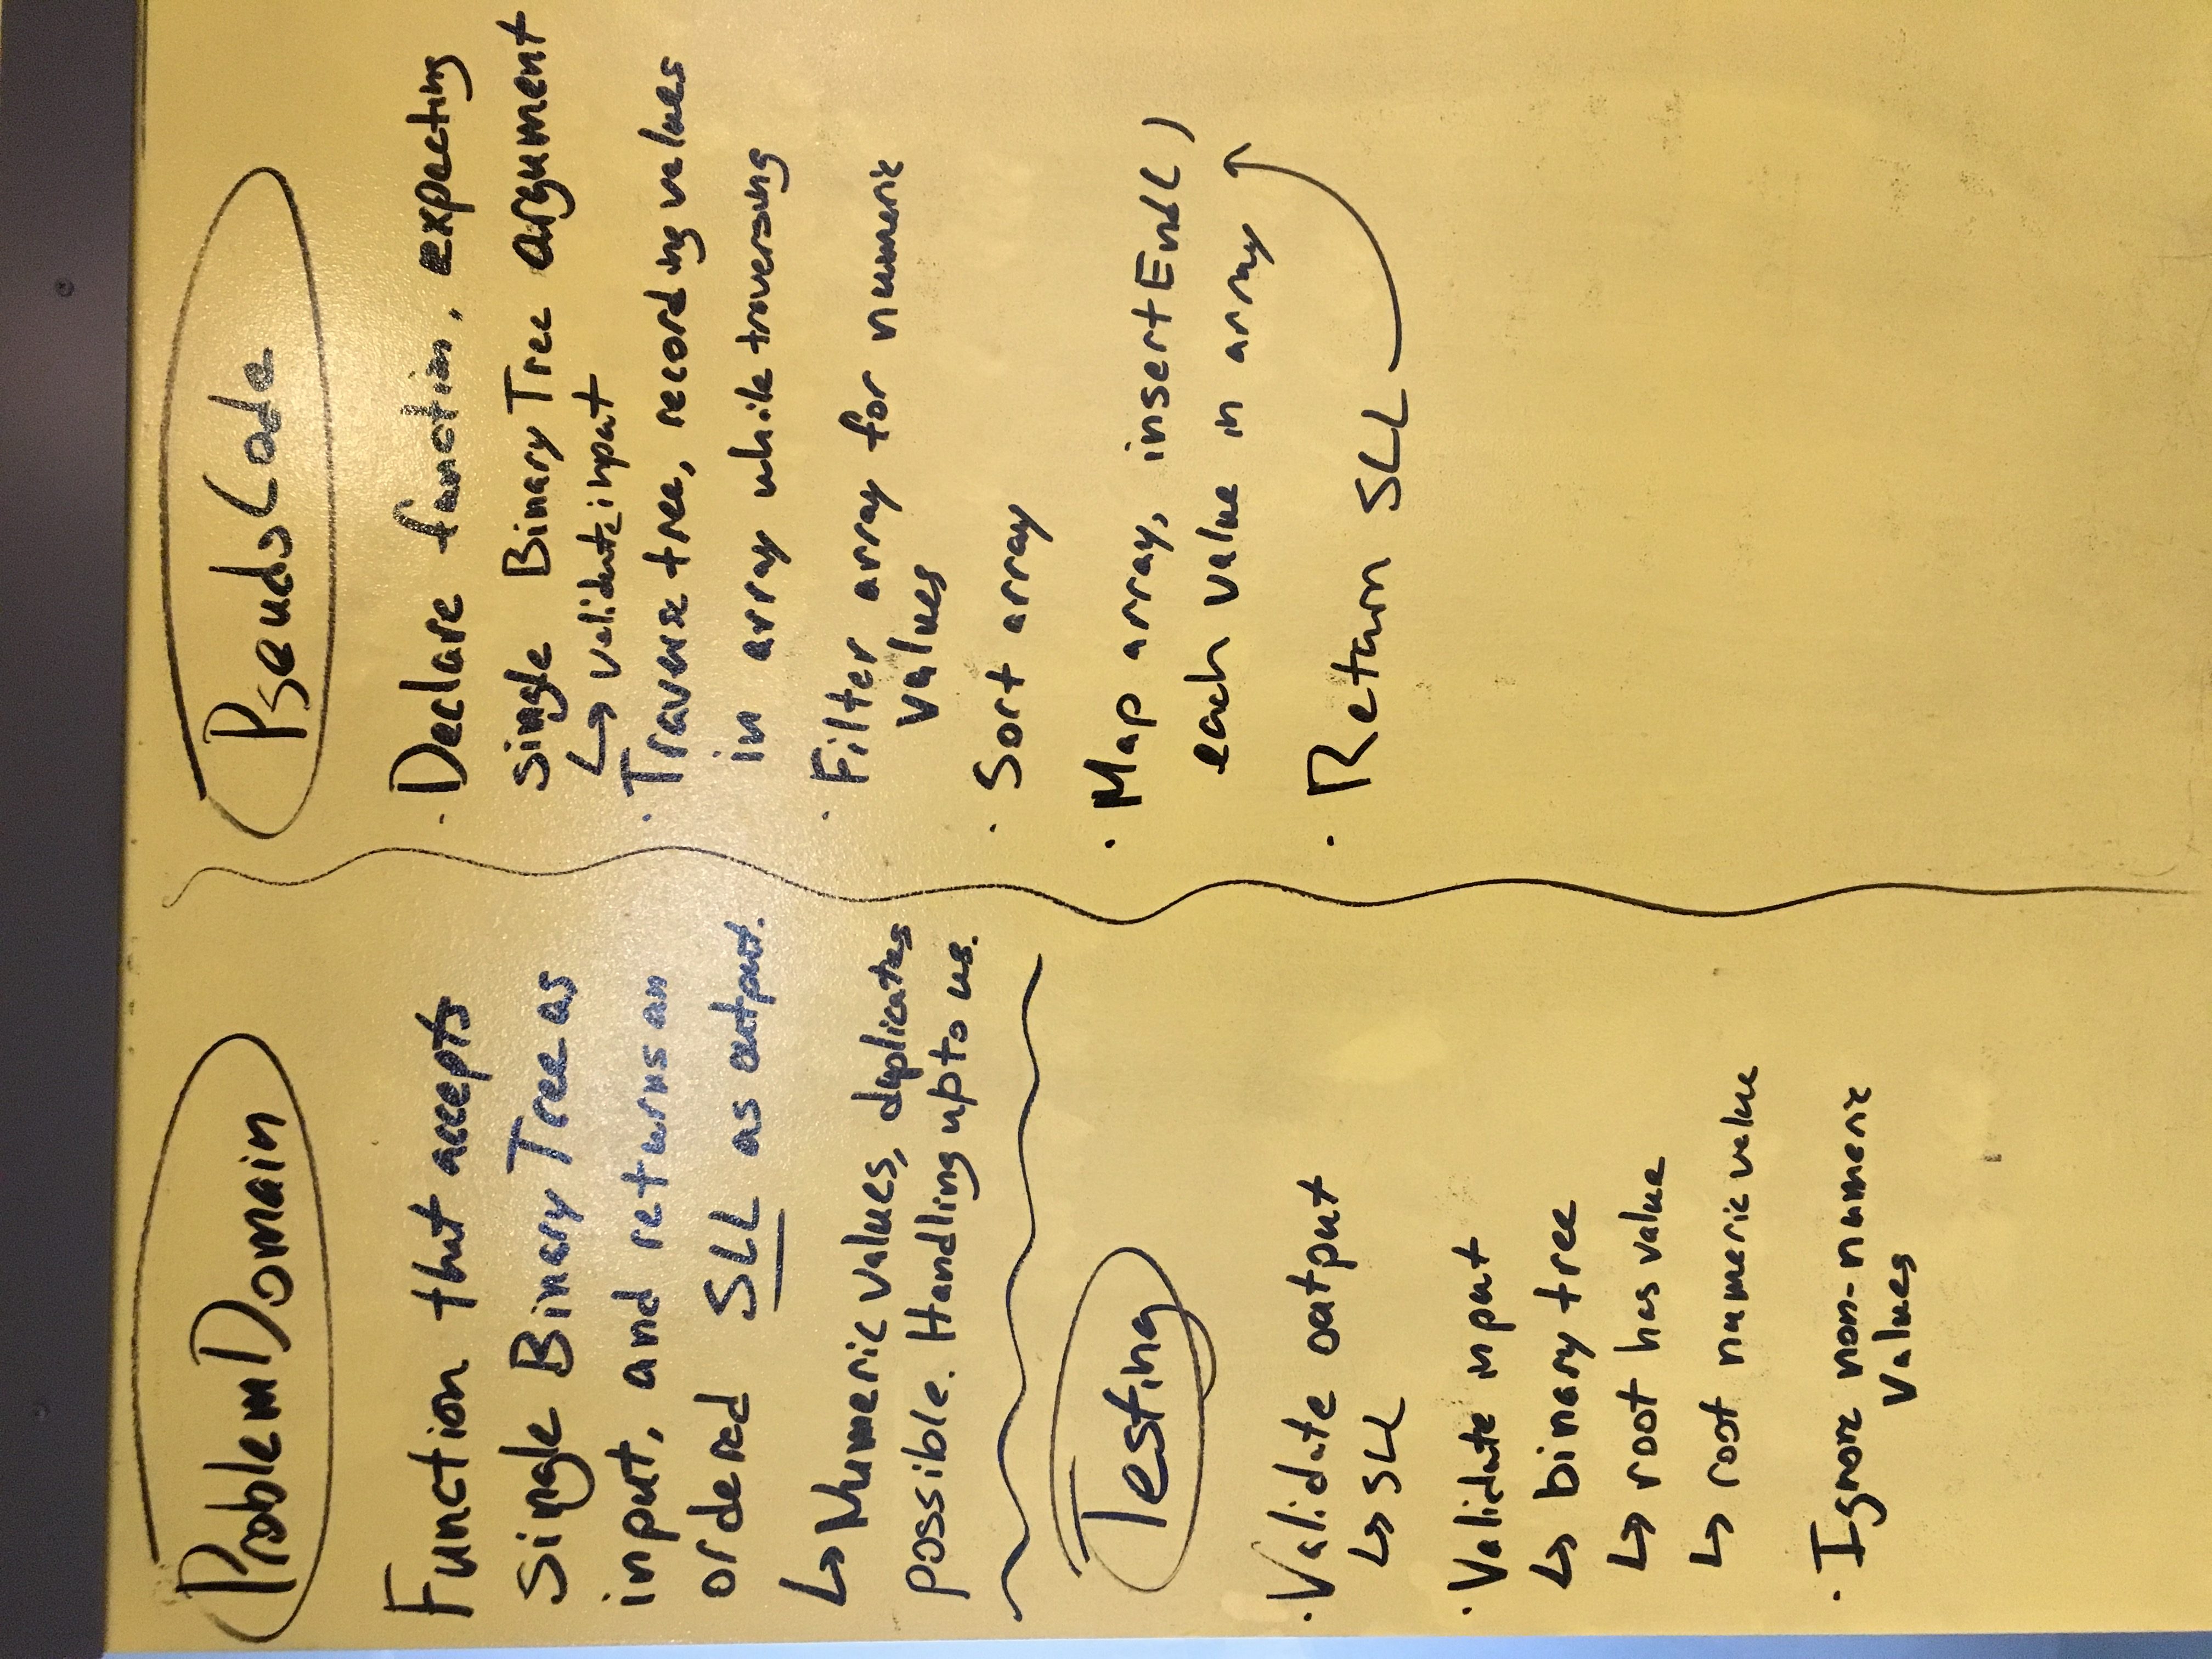 Problem Domain
Function that accepts
single Binary Tree as
input, and returns an
ordered SLL as output.
↳ Numeric values, duplicates
possible. Handling up to us.
Testing
· Validate output
↳ SLL
· Validate input
↳ binary tree
↳ root has value
↳ root numeric value
· Ignore non-numeric
values
Pseudo Code
· Declare function, expecting
single Binary Tree argument
↳ validate input
· Traverse tree, recording values
in array while traversing
· Filter array for numeric
values
· Sort array
· Map array, insertEnd( )
each value in array
· Return SLL